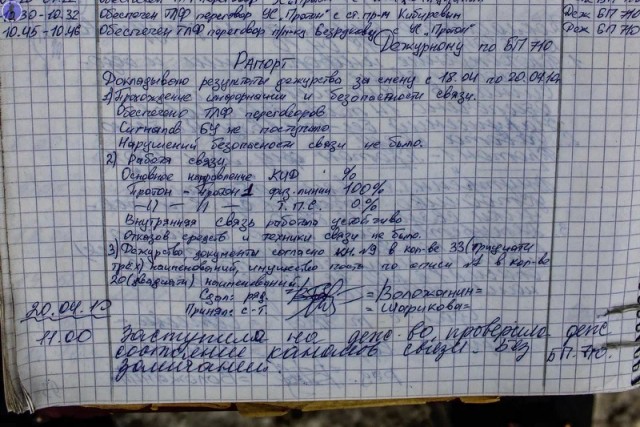 10.30-10.32 Обеспечен ТЛФ переговор УС "Протон" с ст. пр-к Кибиревич Деж БП 710
10.45-10.46 Обеспечен ТЛФ переговор пр-ка Безрукову с УС "Протон" Деж БП 710
Дежурному по БП 710
Рапорт
Докладываю результаты дежурства за смену с 18.04 по 20.04.10
1) Прохождение информации и безопасности связи.
Обеспечено ТЛФ переговоров
Сигналов БУ не поступало
Нарушений безопасности связи не было.
2) Работа связи
Основное направление КИД %
Протон - Протон 1 физ. линии 100%
—//— —//— Т.Г.С. 0%
Внутренняя связь работала устойчиво
Отказов средств и техники связи не было.
3) Дежурство, документы согласно №9 в кол-ве 33 (тридцати
трех) наименований, имущество поста по описи №1 в кол-во
20 (двадцати) наименований
Сдал: ряд. =Воложанин=
20.04.10 Принял: с-т =Шарикова=
11.00 Заступила на деж-во, проверила деж
состояние каналов связи. Без БП-710.
замечаний.